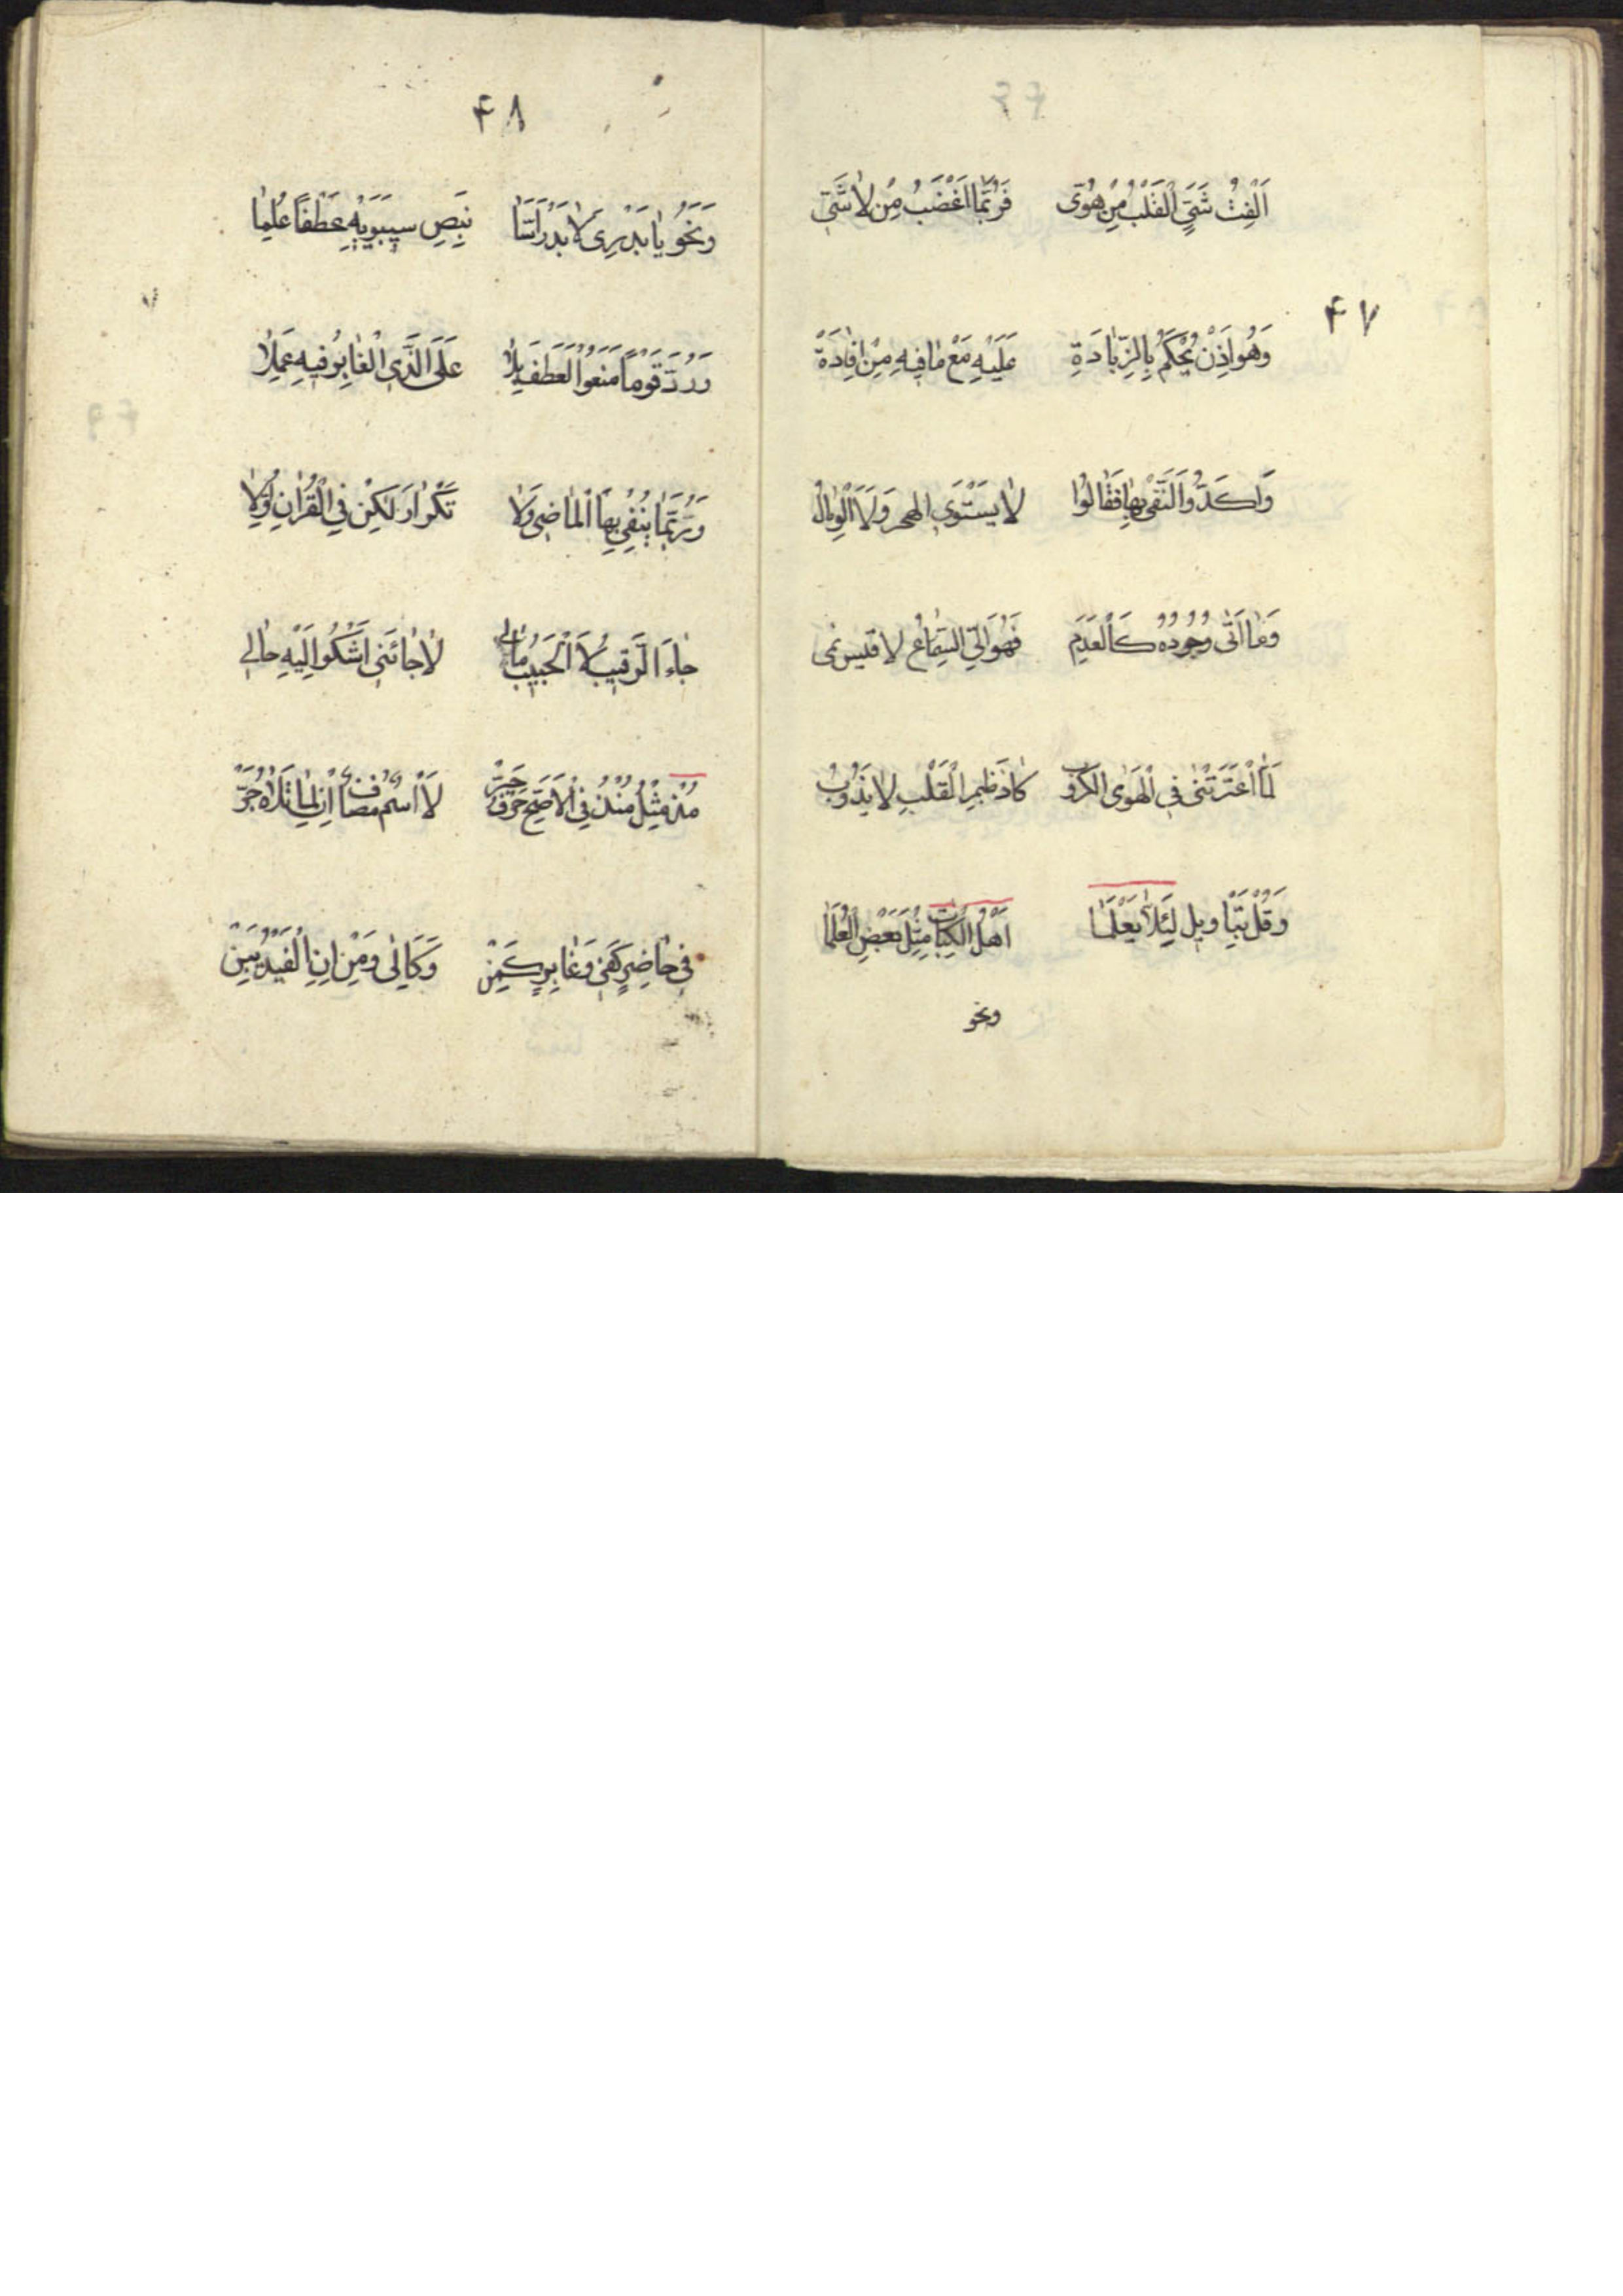 اَلِفْتُ شَتَّى الْقَلْبُ مِنْ هُوَى فَرُبَّمَا اَغْضَبُ مِنْ لَا شَيْ
۴۷
وَهُوَ اِذَنْ يُحْكَمُ بِالزِّيَادَةِ عَلَيْهِ مَعْ مَا فِيهِ مِنْ اِفَادَةٌ
وَاَكَّدُوا النَّفْىَ بِهَا فَقَالُوا لَا يَسْتَوَى الهجر وَلَا الْوِصَالُ
وَمَا اَتٰى وُجُودُهُ كَالْعَدَمِ فَهُوَ اِلَى السَِّمَاعِ لا قيس نمى
لَمَّا اعْتَرَتْنٰى فِى الْهَوٰى الكروب كَادَ ضَمِيرِ الْقَلْبِ لا يَذُوبُ
وَقُلْ بِتَاْوِيلٍ لِئَلَّا يَعْلَمَا اَهْلُ الكِتَابِ مِثْلَ بَعْضِ الْعُلَمَا
ونحو
۴۸
وَنَحْوُ يَا بَدْرِىَ لَا بَدْرَ السَّمَا بِنَصِ سِيبَوَيْهِ عَطْفًا عُلِمَا
وَرُدَّ قَوْمًا مَنَعُوا الْعَطْفَ بِلَا عَلَى الَّذِى الْغَابِرُ فِيهِ عَمِلَا
وَرُبَّمَا يُنْفٰى بِهَا الْمَاضِى وَلَا تَكْرَارَ لٰكِنْ فِي الْقُرْاٰنِ اُوِّلَا
جَاءَ الرَّقِيبُ لَا الْحَبِيبُ مَالِي لَا جَائَنِى اَشْكُوا اِلَيْهِ حَالِي
مُذْ مِثْلُ مُنْذُ فِى الْاَصَحِّ حَرْفُ جَرّْ لَا اسْمٌ مُضَافٌ اِنْ لِمَا تَلَاهُ جَرّْ
فِى حَاضِرٍ كَفِى وَغَابِرٍ كَمِنْ وَكَاِلٰى وَمِنْ اِنِ الْقَيْدُ يَبِنْ